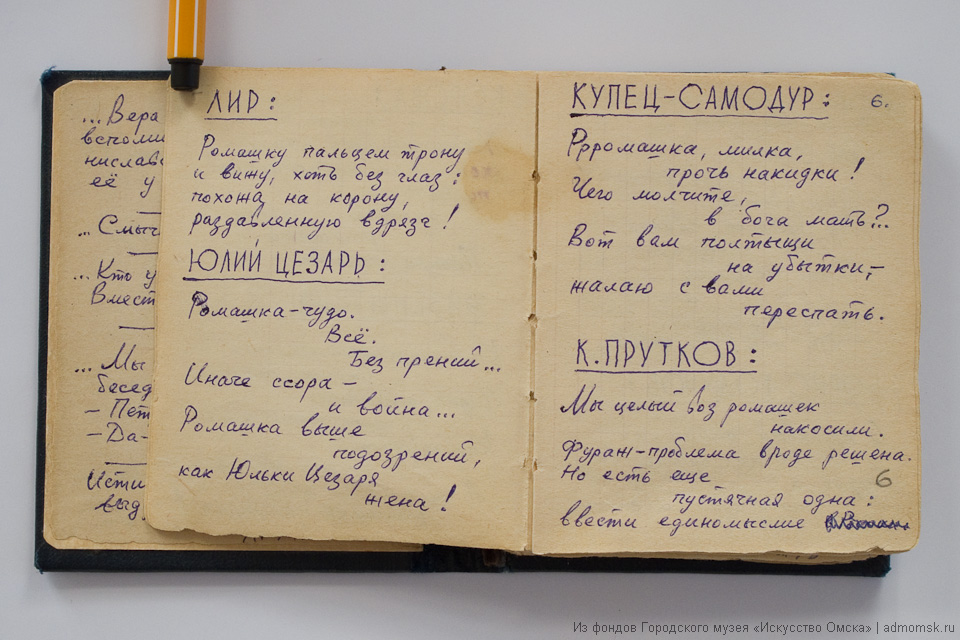 ...Вера
вспоми
нислав
её у
...Смыч
...Кто у
Вмест
...Мы
бесед
- Пет
- Да-
Исти
выд
ЛИР:
Ромашку пальцем трону
и вижу, хоть без глаз:
похожа на корону,
раздавленную вдрязг!
ЮЛИЙ ЦЕЗАРЬ:
Ромашка-чудо.
Всё.
Без прений...
Иначе ссора -
и война...
Ромашка выше
подозрений,
как Юльки Цезаря
жена!
КУПЕЦ-САМОДУР:
6.
Ррромашка, милка,
прочь накидки!
Чего молчите,
в бога мать?..
Вот вам полтыщи
на убытки,-
жалаю с вами
переспать.
К. ПРУТКОВ:
Мы целый воз ромашек
накосили.
Фураж-проблема вроде решена.
Но есть еще
6
пустячная одна:
ввести единомыслие
Из фондов Городского музея «Искусство Омска» | admomsk.ru